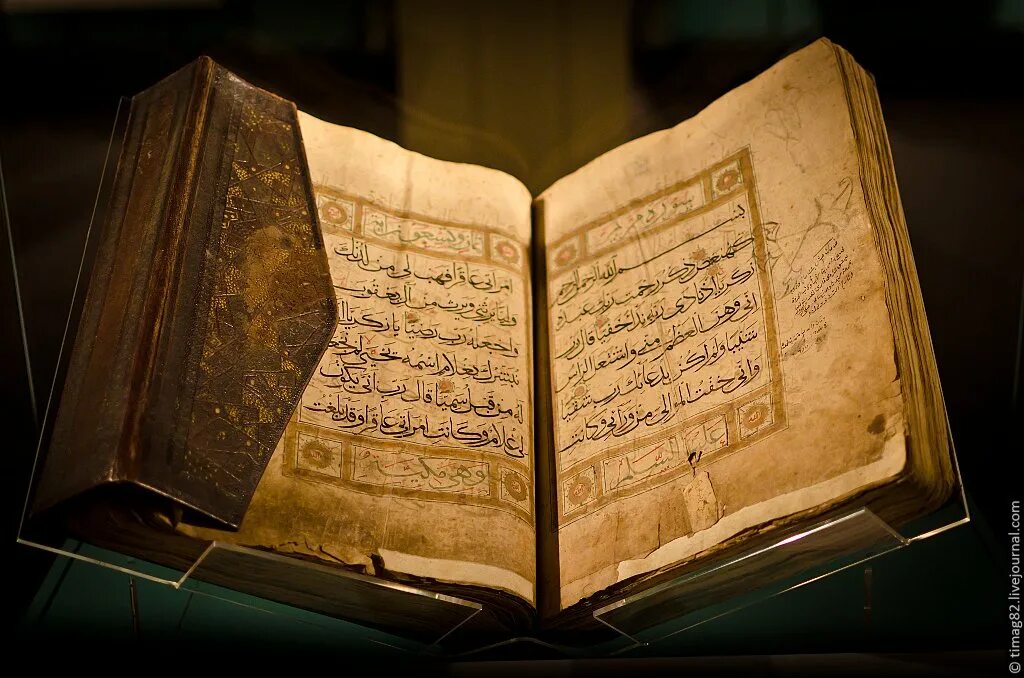 سورة مريم
بسم الله الرحمن الرحيم
كهيعص ذكر رحمت ربك عبده
زكريا اذ نادى ربه نداء خفيا قال رب
اني وهن العظم مني واشتعل الراس
شيبا ولم اكن بدعائك رب شقيا
واني خفت الموالي من وراءي وكانت
عليها السلم
وتسعون اية
امراتي عاقرا فهب لي من لدنك
وليا يرثني ويرث من ال يعقوب
واجعله رب رضيا يا زكريا انا
نبشرك بغلام اسمه يحيى لم نجعل
له من قبل سميا قال رب انى يكون
لي غلام وكانت امراتي عاقرا وقد بلغت
وهي مكية
© timag82.livejournal.com